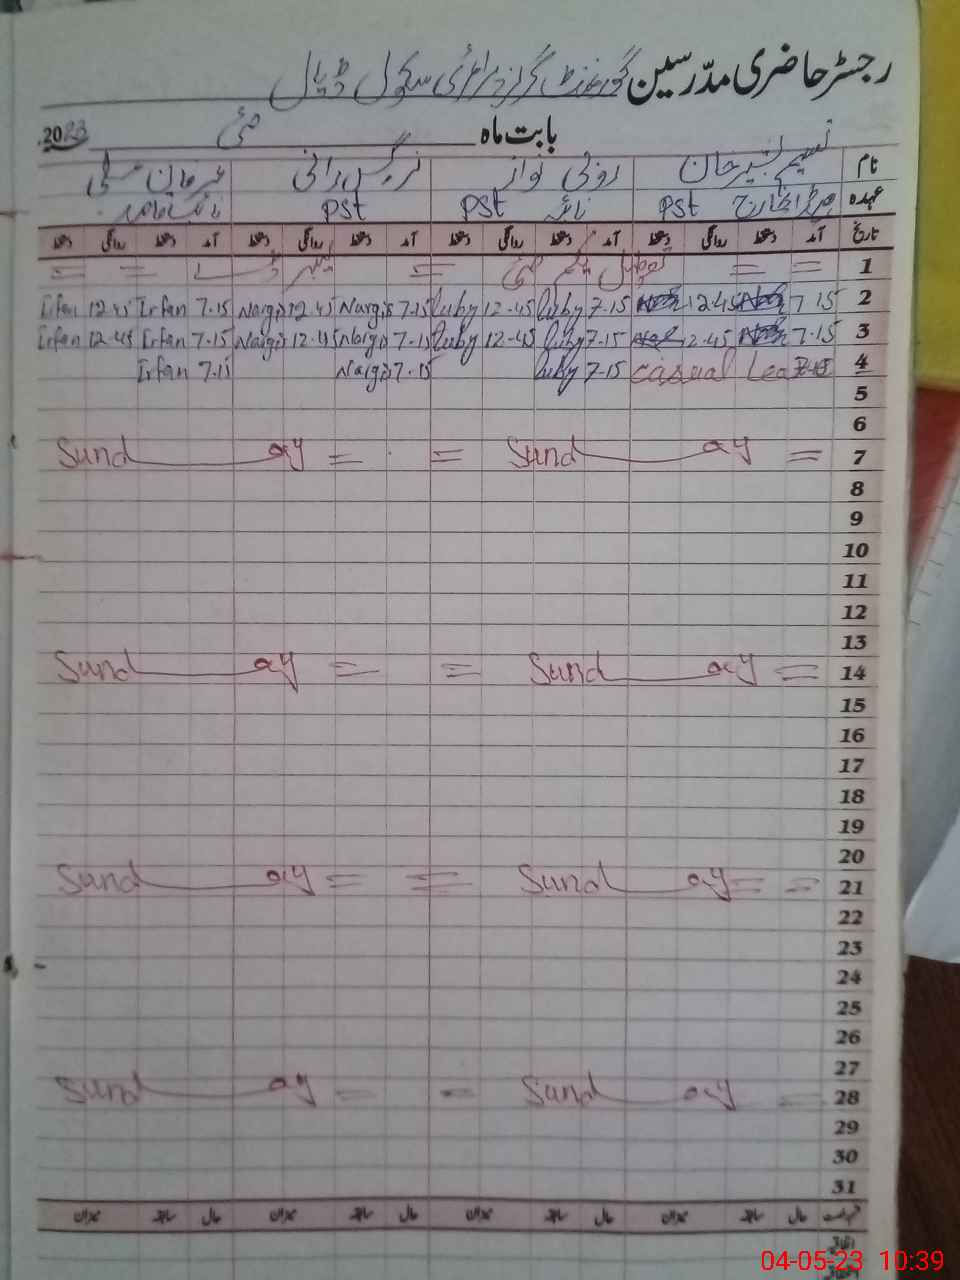 رجسٹر حاضری مدّرسین گورنمنٹ گرلز پرائمری سکول ڈپال
بابت ماہ مئی 2023
نام نسیم اختر خان روبی نواز نرگس رانی عرفان علی
عہدہ ہیڈ انچارج PST نائب PST PST نائب قاصد
تاریخ آمد دستخط روانگی دستخط آمد دستخط روانگی دستخط آمد دستخط روانگی دستخط آمد دستخط روانگی دستخط
1 = = تعطیل یکم مئی =  = =
2 7.15 12.45 Ruby 7.15 Ruby 12.45 Nargis 7.15 Nargis 12.45 Irfan 7.15 Irfan 12.45
3 7.15 12.45 Ruby 7.15 Ruby 12.45 Nargis 7.15 Nargis 12.45 Irfan 7.15 Irfan 12.45
4 casual Lea Ruby 7.15 Nargis 7.15 Irfan 7.15
5
6
7 = Sunday = = Sunday
8
9
10
11
12
13
14 = Sunday = = Sunday
15
16
17
18
19
20
21 = Sunday = = = Sunday
22
23
24
25
26
27
28 = Sunday = = Sunday
29
30
31
حال سابقہ میزان حال سابقہ میزان حال سابقہ میزان حال سابقہ میزان
اتفاقیہ
04-05-23 10:39